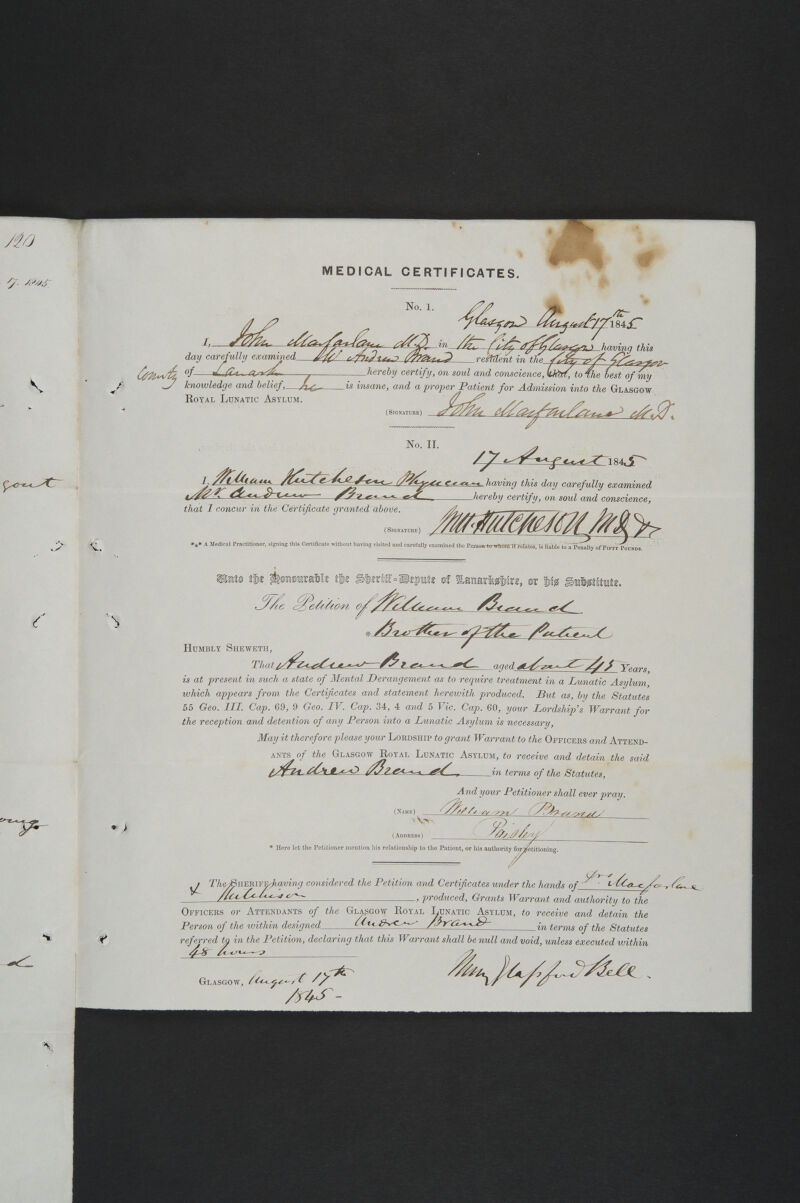 120
MEDICAL CERTIFICATES.
No. 1.
Glasgow August 17th 1845
I, John Macfarlane M.D. in the City of Glasgow having this
day carefully examined Mr Andrew Brand resident in the City of Glasgow
County of Lanark hereby certify, on soul and conscience, that, to the best of my
knowledge and belief, he is insane, and a proper Patient for Admission into the GLASGOW
ROYAL LUNATIC ASYLUM.
(SIGNATURE) John Macfarlane M.D.
No. II.
17 August 1845
I, William Hutcheson Physician having this day carefully examined
Mr. Andrew Brand hereby certify, on soul and conscience,
that I concur in the Certificate granted above.
(SIGNATURE) Hutcheson MD
*⁎* A Medical Practitioner, signing this Certificate without having visited and carefully examined the Person to whom it relates, is liable to a Penalty of FIFTY POUNDS.
Unto the Honourable the Sheriff-Depute of Lanarkshire, or his Substitute.
The Petition of William Brand
* Brother of the Patient
HUMBLY SHEWETH,
That Andrew Brand aged about 48 Years,
is at present in such a state of Mental Derangement as to require treatment in a Lunatic Asylum,
which appears from the Certificates and statement herewith produced. But as, by the Statutes
55 Geo. III. Cap. 69, 9 Geo. IV. Cap. 34, 4 and 5 Vic. Cap. 60, your Lordship's Warrant for
the reception and detention of any Person into a Lunatic Asylum is necessary,
May it therefore please your LORDSHIP to grant Warrant to the OFFICERS and ATTEND-
ANTS of the GLASGOW ROYAL LUNATIC ASYLUM, to receive and detain the said
Andrew Brand in terms of the Statutes,
And your Petitioner shall ever pray.
(NAME) William Brand
(ADDRESS) Paisley
* Here let the Petitioner mention his relationship to the Patient, or his authority for petitioning.
The SHERIFF having considered the Petition and Certificates under the hands of Drs Macfarlane
& Hutchison, produced, Grants Warrant and authority to the
OFFICERS OR ATTENDANTS of the GLASGOW ROYAL LUNATIC ASYLUM, to receive and detain the
Person of the within designed Andrew Brand in terms of the Statutes
referred to in the Petition, declaring that this Warrant shall be null and void, unless executed within
48 hours
GLASGOW, August 17th
1845 -
Henry Glassford Bell.